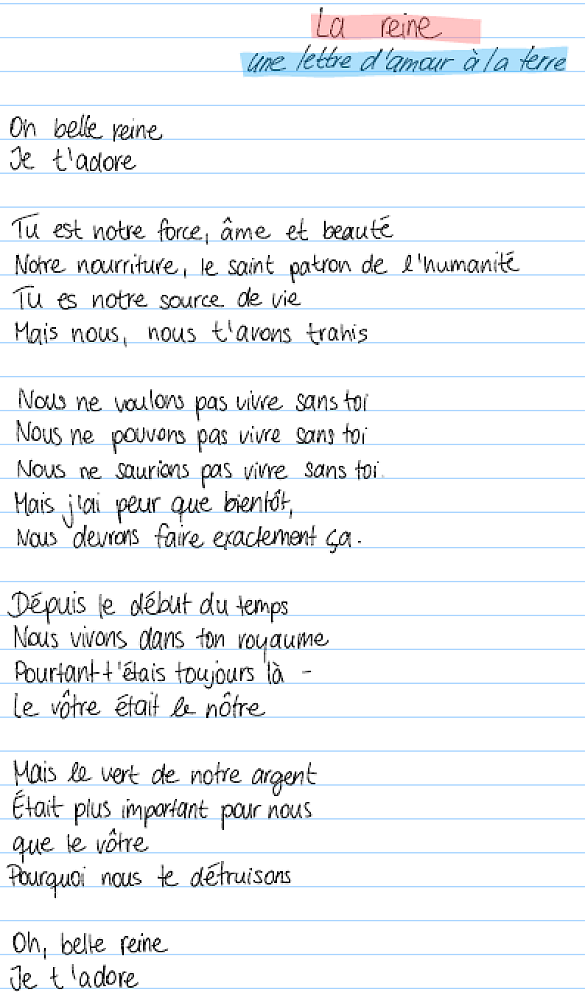 La reine
une lettre d'amour à la terre
Oh belle reine
Je t'adore
Tu est notre force, âme et beauté
Notre nourriture, le saint patron de l'humanité
Tu es notre source de vie
Mais nous, nous t'avons trahis
Nous ne voulons pas vivre sans toi
Nous ne pouvons pas vivre sans toi
Nous ne saurions pas vivre sans toi.
Mais j'ai peur que bientôt,
Nous devrons faire exactement ça.
Dépuis le début du temps
Nous vivons dans ton royaume
Pourtant t'étais toujours là -
Le vôtre était le nôtre
Mais le vert de notre argent
Était plus important pour nous
que le vôtre
Pourquoi nous te détruisons
Oh, belle reine
Je t'adore